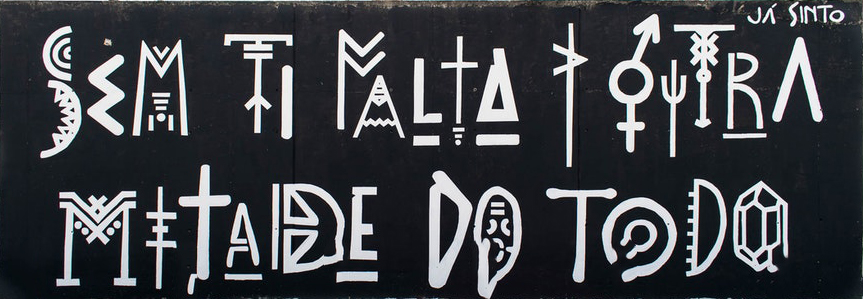 JÁ SINTO
SEM TI FALTA A OUTRA
METADE DO TODO